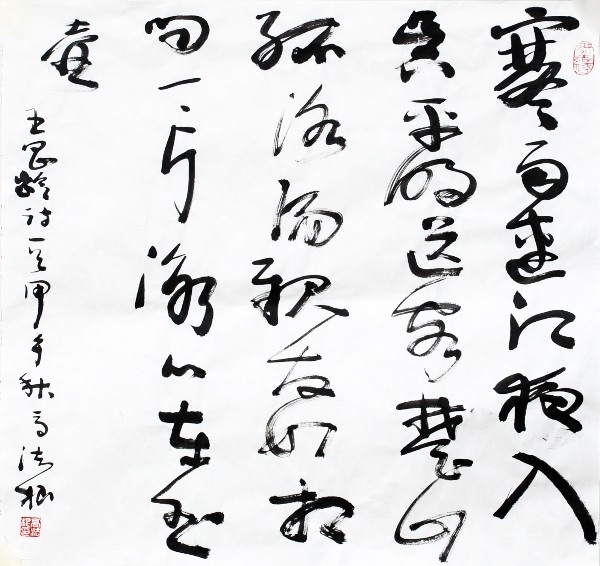 寒雨連江夜入
吳平明送客楚山
孤洛陽親友如相
問一片冰心在玉
壺
王昌齡詩一首甲午秋高法